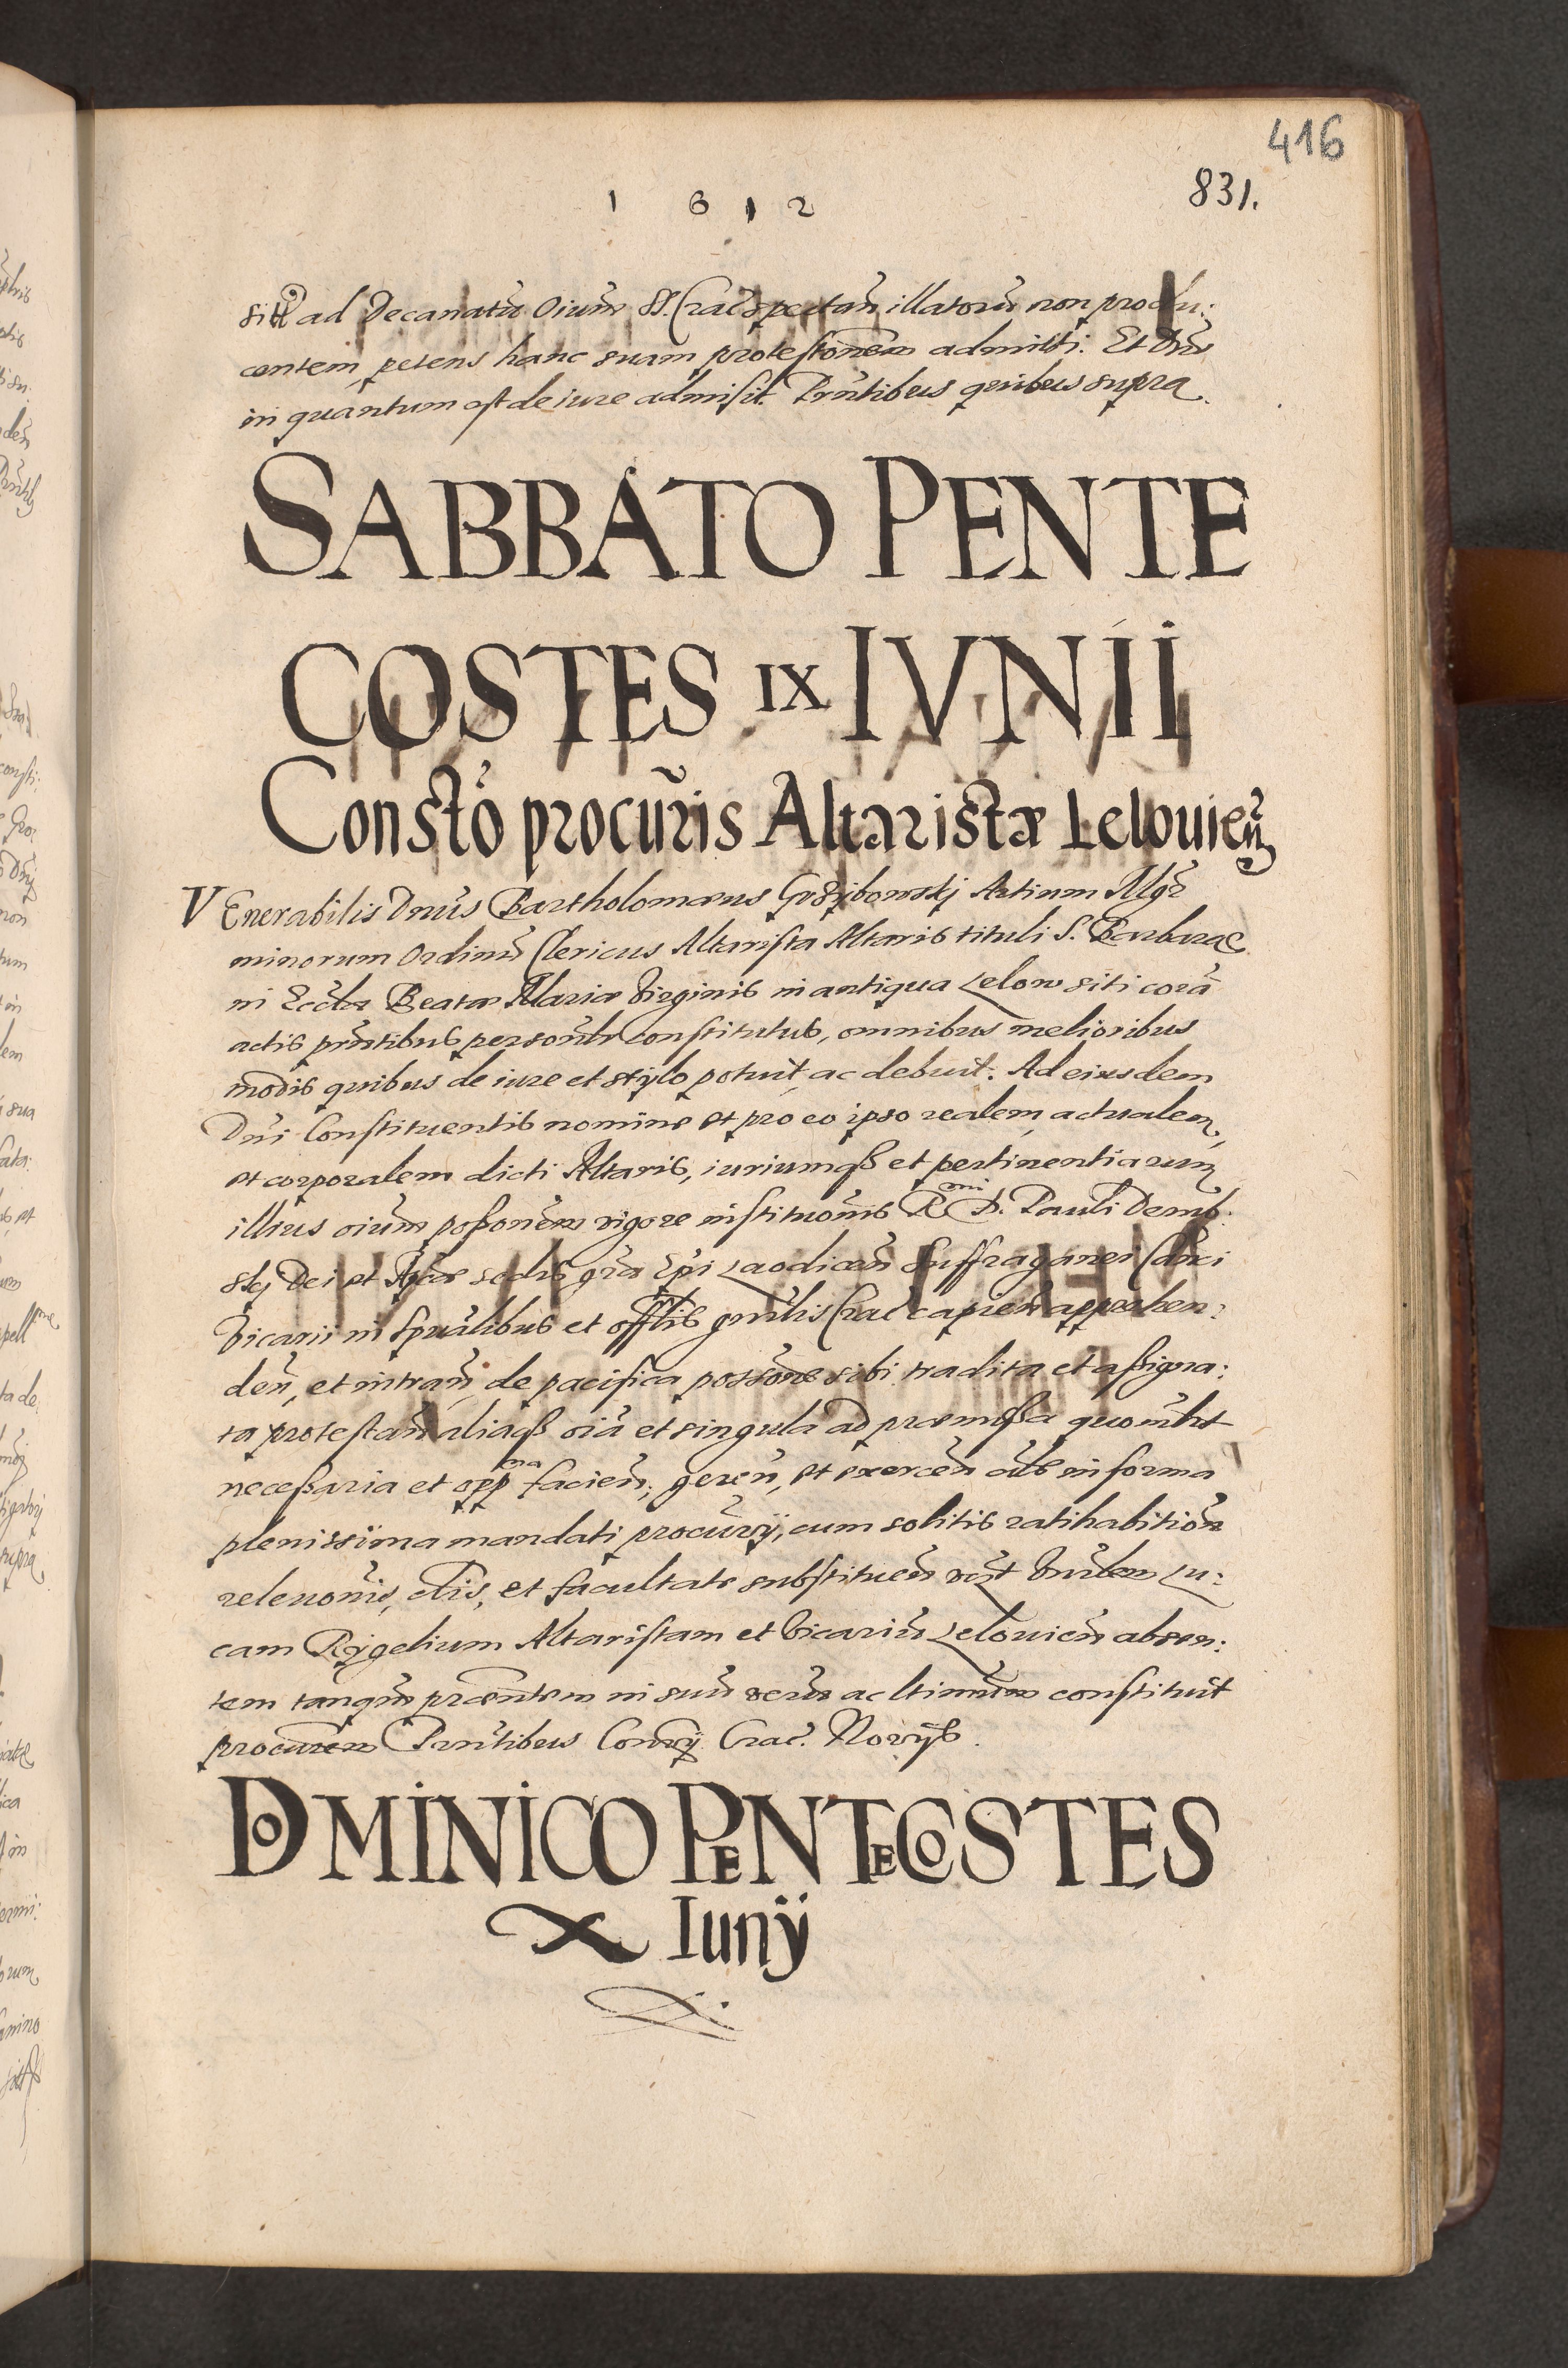 416
831.
1 6 1 2
ad Decanatũ Oium̃ SS. Crac̃ spectan̄ illatorũ non produ:
centem, petens hanc suam protestonem̃ admitti. Et Dñs
in quantum est de iure admisit. Prñtibus quibus supra.
SABBATO PENTE
COSTES IX IVNII
Constõ procur̃is Altaristæ Lelouien̄
VEnerabilis Dnũs Bartholomæus Grzijbowskj Artium Mgr̃
minorum Ordinũ Clericus Altarista Altaris tituli S. Barbarae
in Eccla Beatæ Mariæ Virginis in antiqua Lelow siti corã
actis prñtibus personlr̃ constitutus, omnibus melioribus
modis quibus de iure et stylo potuit, ac debuit. Ad eiusdem
Dni Constituentis nomine et pro eo ipso realem, actualem,
et corporalem dicti Altaris, iuriumqß et pertinentiarum
illius oium̃ poßonem̃ vigore institutionis̃ R mi D. Pauli Demb:
skj Dei et Aplcæ sedis grã Epi Laodicen̄ Suffraganei
Vicarii in Spualibus et offlis gnr̃lis Crac̃ capien̄ apprehen:
den̄, et intran̄, de pacifica possone sibi tradita et aßigna:
ta protestan̄ aliaqß oiã et singula ad præmißa quomlbt
neceßaria et opp na facien̄, geren̄, et exercen̄ in forma
plenissima mandati procur̃ij, cum solitis ratihabition̄
releuonis̃, et facultate substituen̄ Lu:
cam Rijgelium Altaristam et Vicariũ Lelouien̄ absen:
tem tanqũ præsentem in suũ verũ ac ltimum̃ constituit
procurem̃ Prñtibus Conr̃ij Crac̃. Norijs.
DOMINICO PENTECOSTES
X Iunÿ